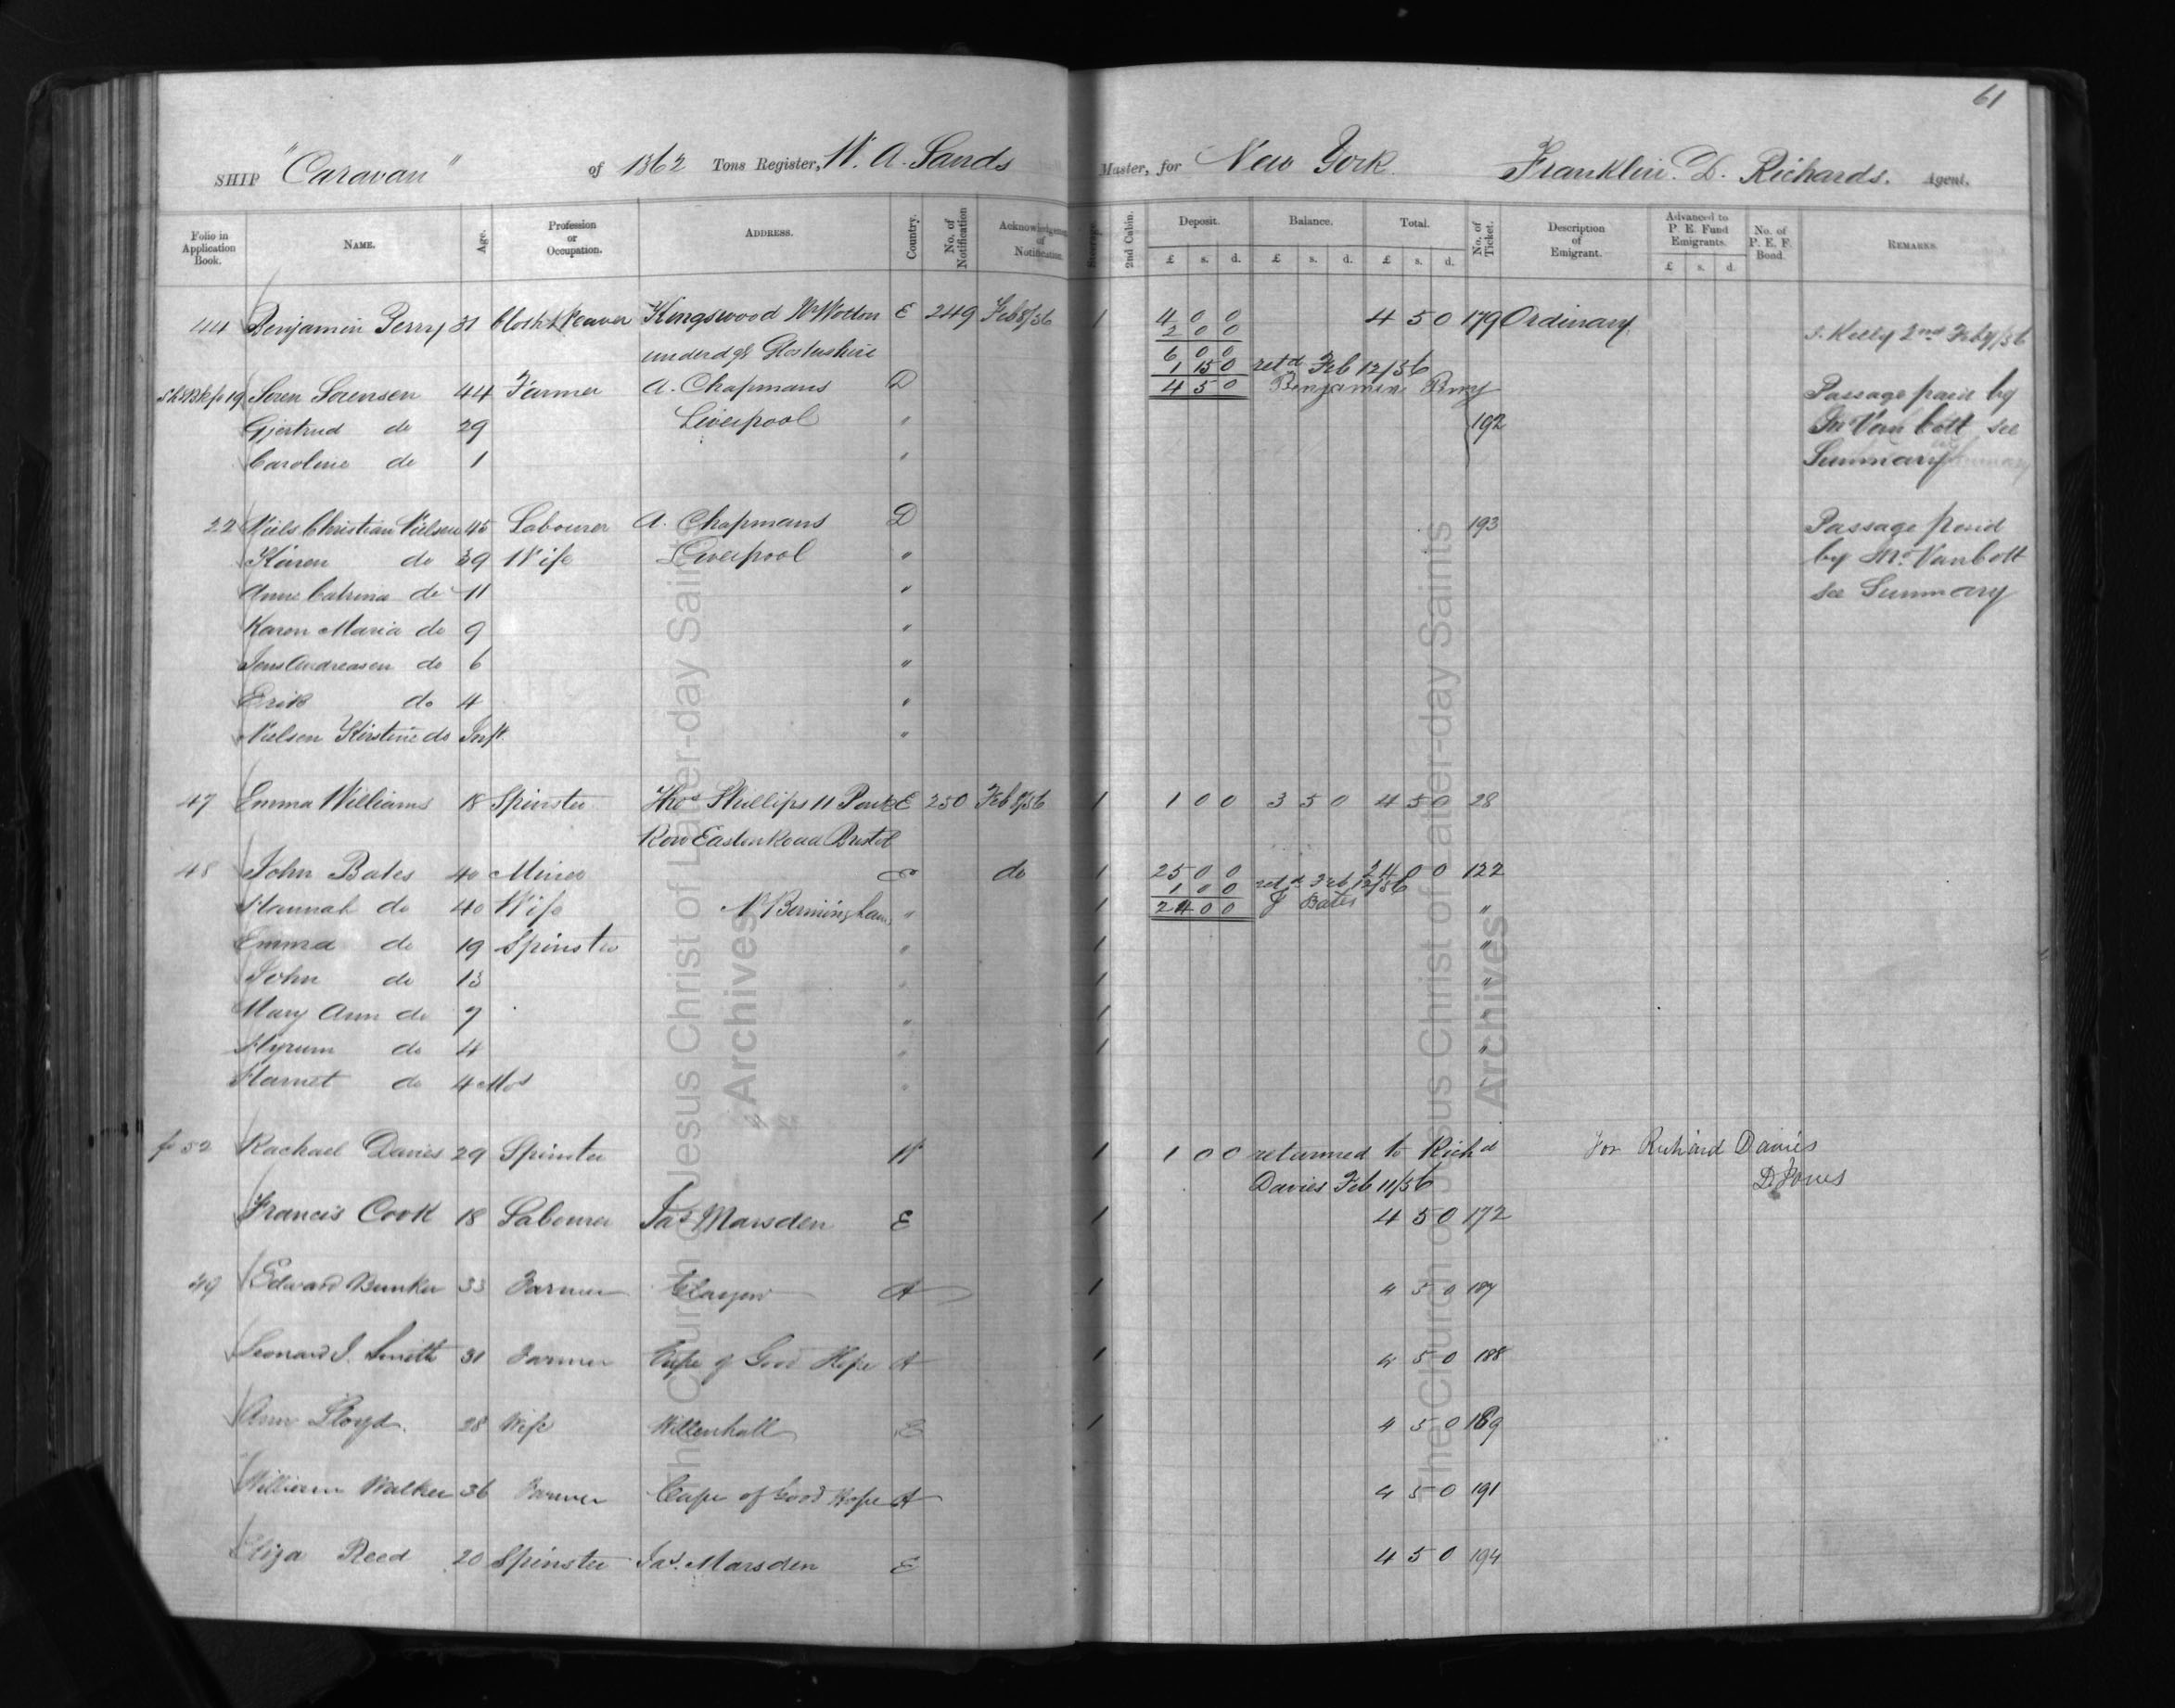 61
SHIP "Caravan" of 1362 Tons Register, W. A. Sands Master, for New York. Franklin. D. Richards. Agent.
Folio in Application Book. NAME. Age. Profession or Occupation. ADDRESS. Country. No. of Notification Acknowledgement of Notification. Steerage. 2nd Cabin. Deposit. Balance. Total. No. of Ticket. Description of Emigrant. Advanced to P. E. Fund Emigrants. No. of P. E. F. Bond. REMARKS.
£ s. d. £ s. d. £ s. d. £ s. d.
44 Benjamin Perry 31 Cloth Weaver Kingswood Nr Wotton E 249 Feb 8/56 1 4 0 0 4 5 0 179 Ordinary. J. Kelly 2nd Feby/56
2 0 0
underdge Glostershire 6 0 0
1 15 0 retd Feb 12/56
19 Soren Sorensen 44 Farmer A. Chapmans D 4 5 0 Benjamin Perry Passage paid by
Gjertrud do 29 Liverpool " 192 Mr Van Cott see
Caroline do 1 " Summary
22 Niels Christian Nielsen 45 Labourer A. Chapmans D 193 Passage paid
Karen do 39 Wife Liverpool " by Mr. Vancott
Anne Catrina do 11 " see Summary
Karen Maria do 9 "
Jens Andreasen do 6 "
Erik do 4 "
Nielsen Kirstine do Inft. "
47 Emma Williams 18 Spinster Thos Phillips 11 Park E 250 Feb 8/56 1 1 0 0 3 5 0 4 5 0 28
Row Easton Road Bristol
48 John Bates 40 Miner E do 1 25 0 0 24 0 0 122
1 0 0 retd Feb 12/56
Hannah do 40 Wife Nr Birmingham " 1 24 0 0 J Bates "
Emma do 19 Spinster " 1 "
John do 13 " 1 "
Mary Ann do 7 " 1 "
Hyrum do 4 " 1 "
Harriet do 4 Mos "
fo 52 Rachael Davies 29 Spinster W 1 1 0 0 returned to Richd For Richard Davies
Davies Feb 11/56 D Jones
Francis Cook 18 Labourer Jas Marsden E 1 4 5 0 172
49 Edward Bunker 33 Farmer Glasgow A 1 4 5 0 187
Leonard I. Smith 31 Farmer Cape of Good Hope A 1 4 5 0 188
Ann Lloyd. 28 Wife Willenhall E 1 4 5 0 189
William Walker 36 Farmer Cape of Good Hope A 4 5 0 191
Eliza Reed 20 Spinster Jas. Marsden E 4 5 0 194
The Church of Jesus Christ of Latter-day Saints
Archives
The Church of Jesus Christ of Latter-day Saints
Archives